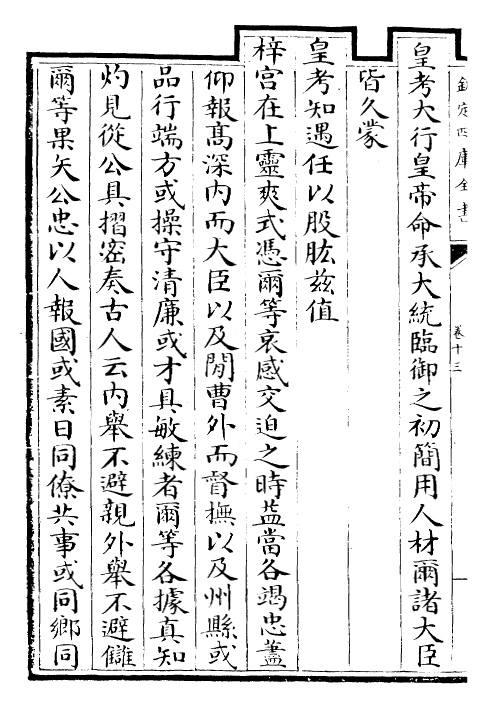 欽定四庫全書
卷十三
皇考大行皇帝命承大統臨御之初簡用人材爾諸大臣
皆久蒙
皇考知遇任以股肱兹值
梓宫在上靈爽式憑爾等哀感交迫之時葢當各竭忠藎
仰報髙深内而大臣以及閒曹外而督撫以及州縣或
品行端方或操守清廉或才具敏練者爾等各據真知
灼見從公具摺密奏古人云内舉不避親外舉不避讎
爾等果矢公忠以人報國或素日同僚共事或同鄉同